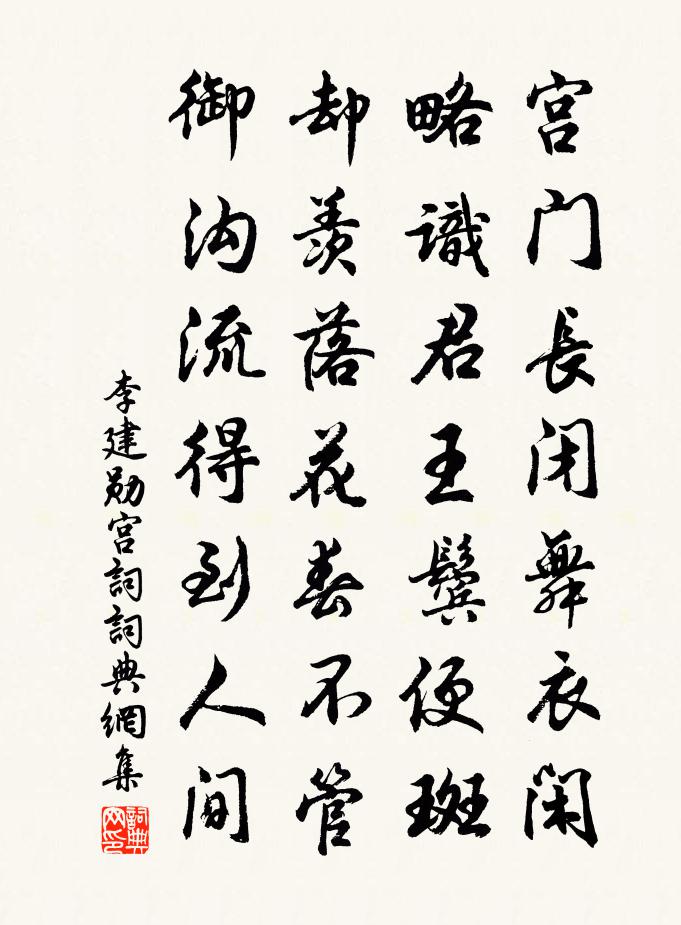 宫门長闭舞衣闲
略識君王鬓便斑
却羨落花春不管
御沟流得到人间
李建勋宫詞詞典網集
詞典网印